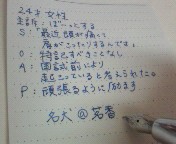 24才 女性
主訴：ぼーっとする
S：「最近頭が痛くて
肩がこったりするんです」
O：特記すべきことなし
A：国試前により
起こっていると考えられた。
P：頑張るように励ます
名犬@茗香